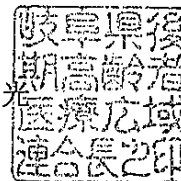 岐阜県後
期高齢者
医療広域
連合長之印
光